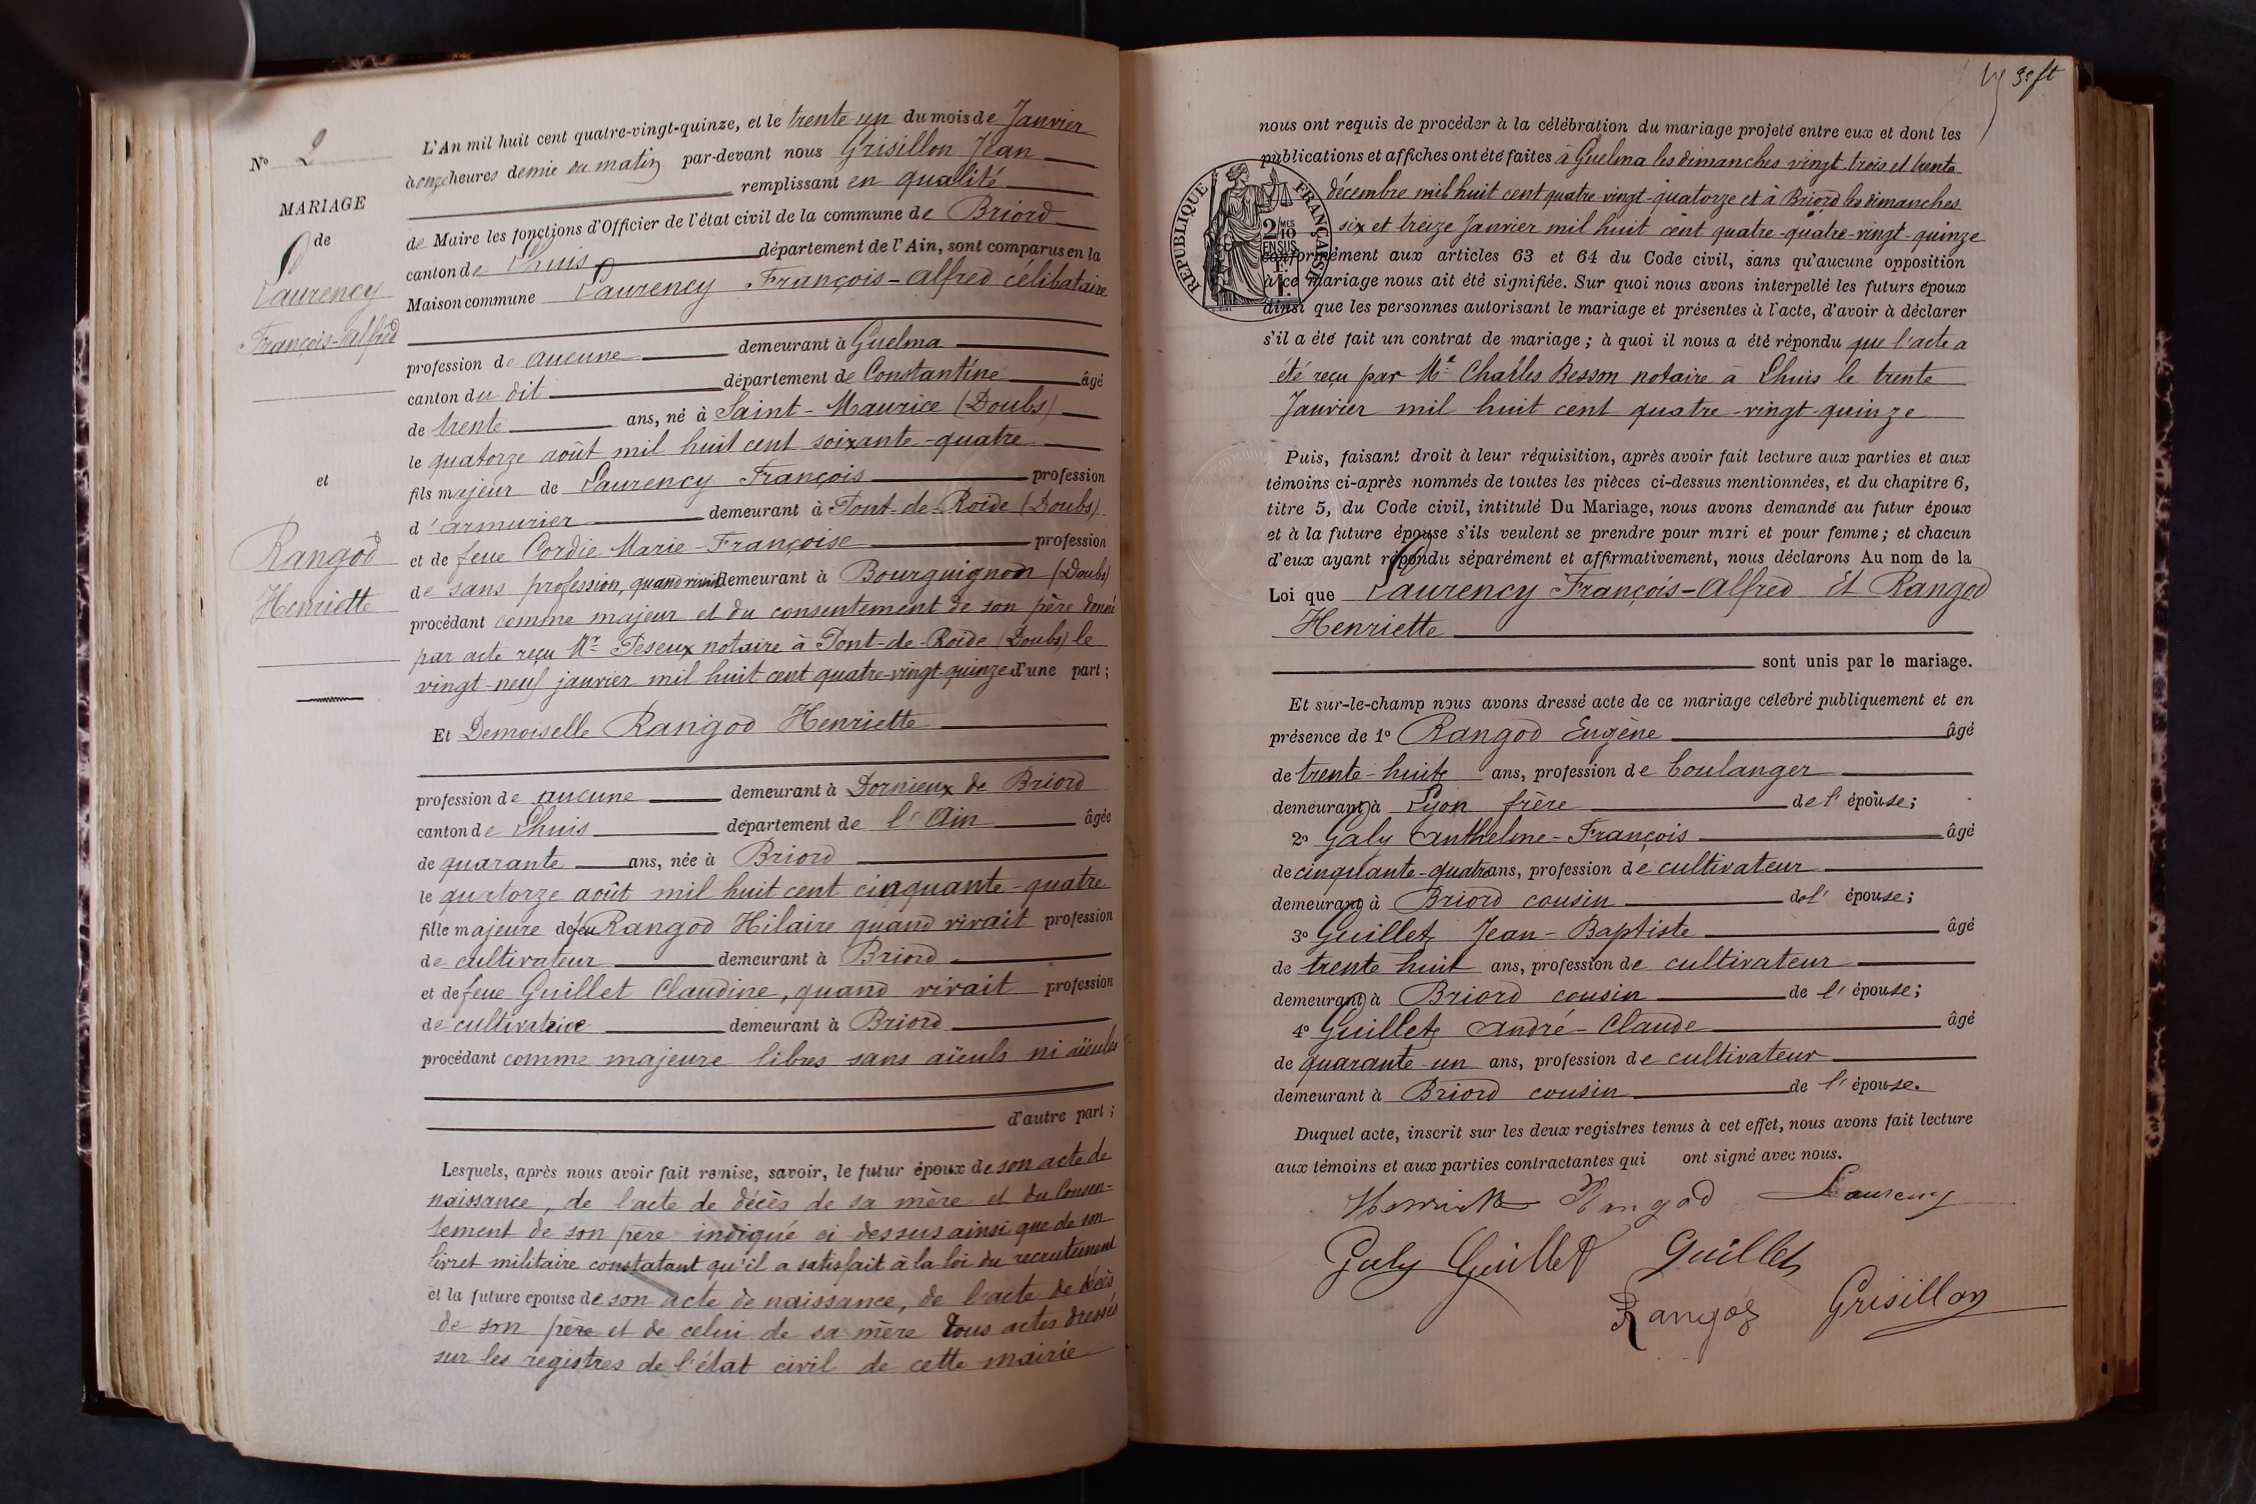 N° 2
MARIAGE
de
Laurency
François-Alfred
et
Rangod
Henriette
L'An mil huit cent quatre-vingt-quinze, et le trente un du mois de Janvier
à onze heures demie du matin par-devant nous Grisillon Jean
remplissant en qualité
de Maire les fonctions d'Officier de l'état civil de la commune de Briord
canton de Lhuis département de l'Ain, sont comparus en la
Maison commune Laurency François-Alfred célibataire
profession de aucune demeurant à Guelma
canton du dit département de Constantine âgé
de trente ans, né à Saint-Maurice (Doubs)
le quatorze août mil huit cent soixante-quatre
fils majeur de Laurency François profession
d'armurier demeurant à Pont-de-Roide (Doubs)
et de feue Cordie Marie-Françoise profession
de sans profession, quand vivait demeurant à Bourguignon (Doubs)
procédant comme majeur et du consentement de son père donné
par acte reçu Mr Peseux notaire à Pont-de-Roide (Doubs) le
vingt-neuf janvier mil huit cent quatre-vingt-quinze d'une part;
Et Demoiselle Rangod Henriette
profession de aucune demeurant à Dornieux de Briord
canton de Lhuis département de l'Ain âgée
de quarante ans, née à Briord
le quatorze août mil huit cent cinquante-quatre
fille majeure de feu Rangod Hilaire quand vivait profession
de cultivateur demeurant à Briord
et de feue Guillet Claudine, quand vivait profession
de cultivatrice demeurant à Briord
procédant comme majeure libres sans aïeuls ni aïeules
d'autre part;
Lesquels, après nous avoir fait remise, savoir, le futur époux de son acte de
naissance, de l'acte de décès de sa mère et du consen-
tement de son père indiqué ci dessus ainsi que de son
livret militaire constatant qu'il a satisfait à la loi du recrutement
et la future epouse de son acte de naissance, de l'acte de décès
de son père et de celui de sa mère tous actes dressés
sur les registres de l'état civil de cette mairie
3e ft
nous ont requis de procéder à la célébration du mariage projeté entre eux et dont les
publications et affiches ont été faites à Guelma les dimanches vingt-trois et trente
décembre mil huit cent quatre vingt-quatorze et à Briord les dimanches
six et treize Janvier mil huit cent quatre-quatre-vingt-quinze
RÉPUBLIQUE FRANÇAISE
2/10 MES
EN SUS
1 F.
conformément aux articles 63 et 64 du Code civil, sans qu'aucune opposition
à ce mariage nous ait été signifiée. Sur quoi nous avons interpellé les futurs époux
ainsi que les personnes autorisant le mariage et présentes à l'acte, d'avoir à déclarer
s'il a été fait un contrat de mariage; à quoi il nous a été répondu que l'acte a
été reçu par Me Charles Besson notaire à Lhuis le trente
Janvier mil huit cent quatre-vingt-quinze
Puis, faisant droit à leur réquisition, après avoir fait lecture aux parties et aux
témoins ci-après nommés de toutes les pièces ci-dessus mentionnées, et du chapitre 6,
titre 5, du Code civil, intitulé Du Mariage, nous avons demandé au futur époux
et à la future épouse s'ils veulent se prendre pour mari et pour femme; et chacun
d'eux ayant répondu séparément et affirmativement, nous déclarons Au nom de la
Loi que Laurency François-Alfred Et Rangod
Henriette
sont unis par le mariage.
Et sur-le-champ nous avons dressé acte de ce mariage célébré publiquement et en
présence de 1° Rangod Eugène âgé
de trente-huit ans, profession de boulanger
demeurant à Lyon frère de l'épouse;
2° Galy Anthelme-François âgé
de cinquante-quatre ans, profession de cultivateur
demeurant à Briord cousin de l'épouse;
3° Guillet Jean-Baptiste âgé
de trente huit ans, profession de cultivateur
demeurant à Briord cousin de l'épouse;
4° Guillet André-Claude âgé
de quarante-un ans, profession de cultivateur
demeurant à Briord cousin de l'épouse.
Duquel acte, inscrit sur les deux registres tenus à cet effet, nous avons fait lecture
aux témoins et aux parties contractantes qui ont signé avec nous.
Henriette Rangod Laurency
Galy Guillet Guillet
Rangod Grisillon